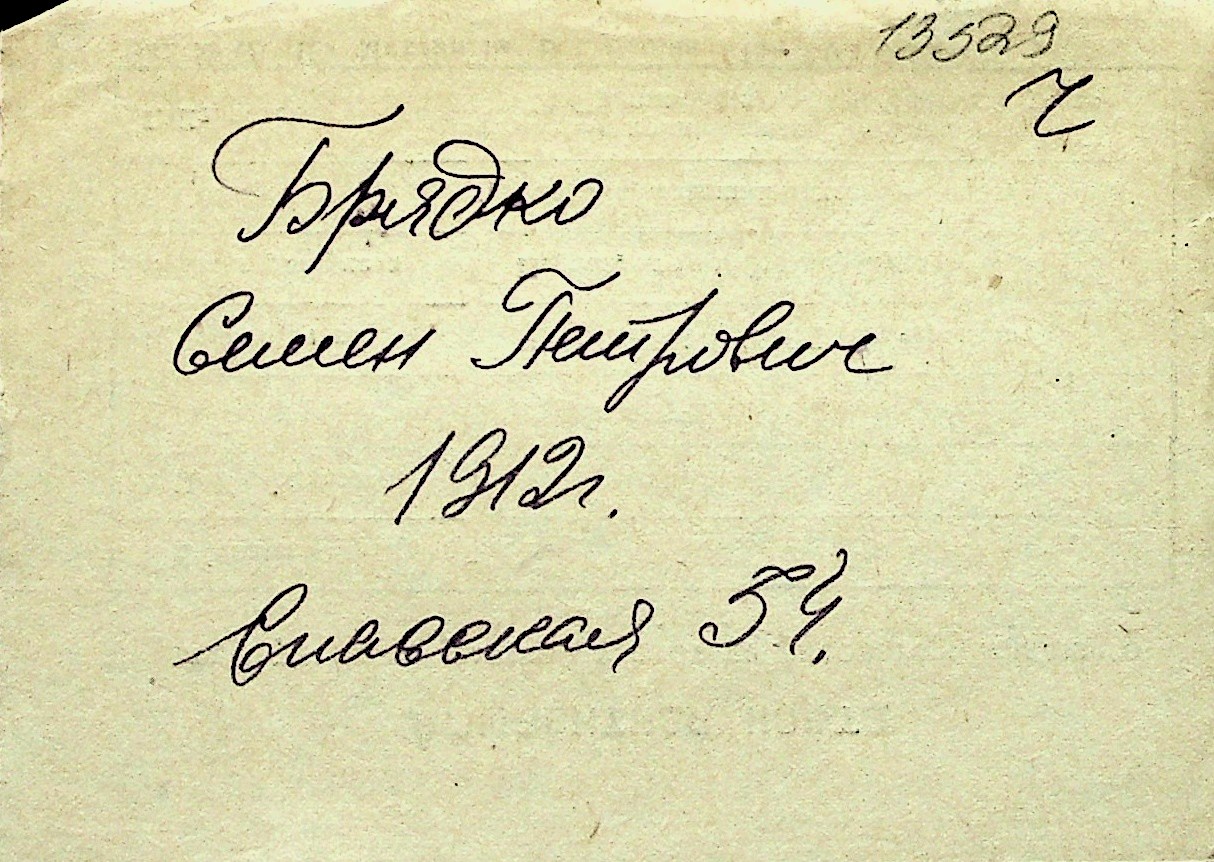 13529
ч
Брядко
Семен Петрович
1912г.
Спасская 54.